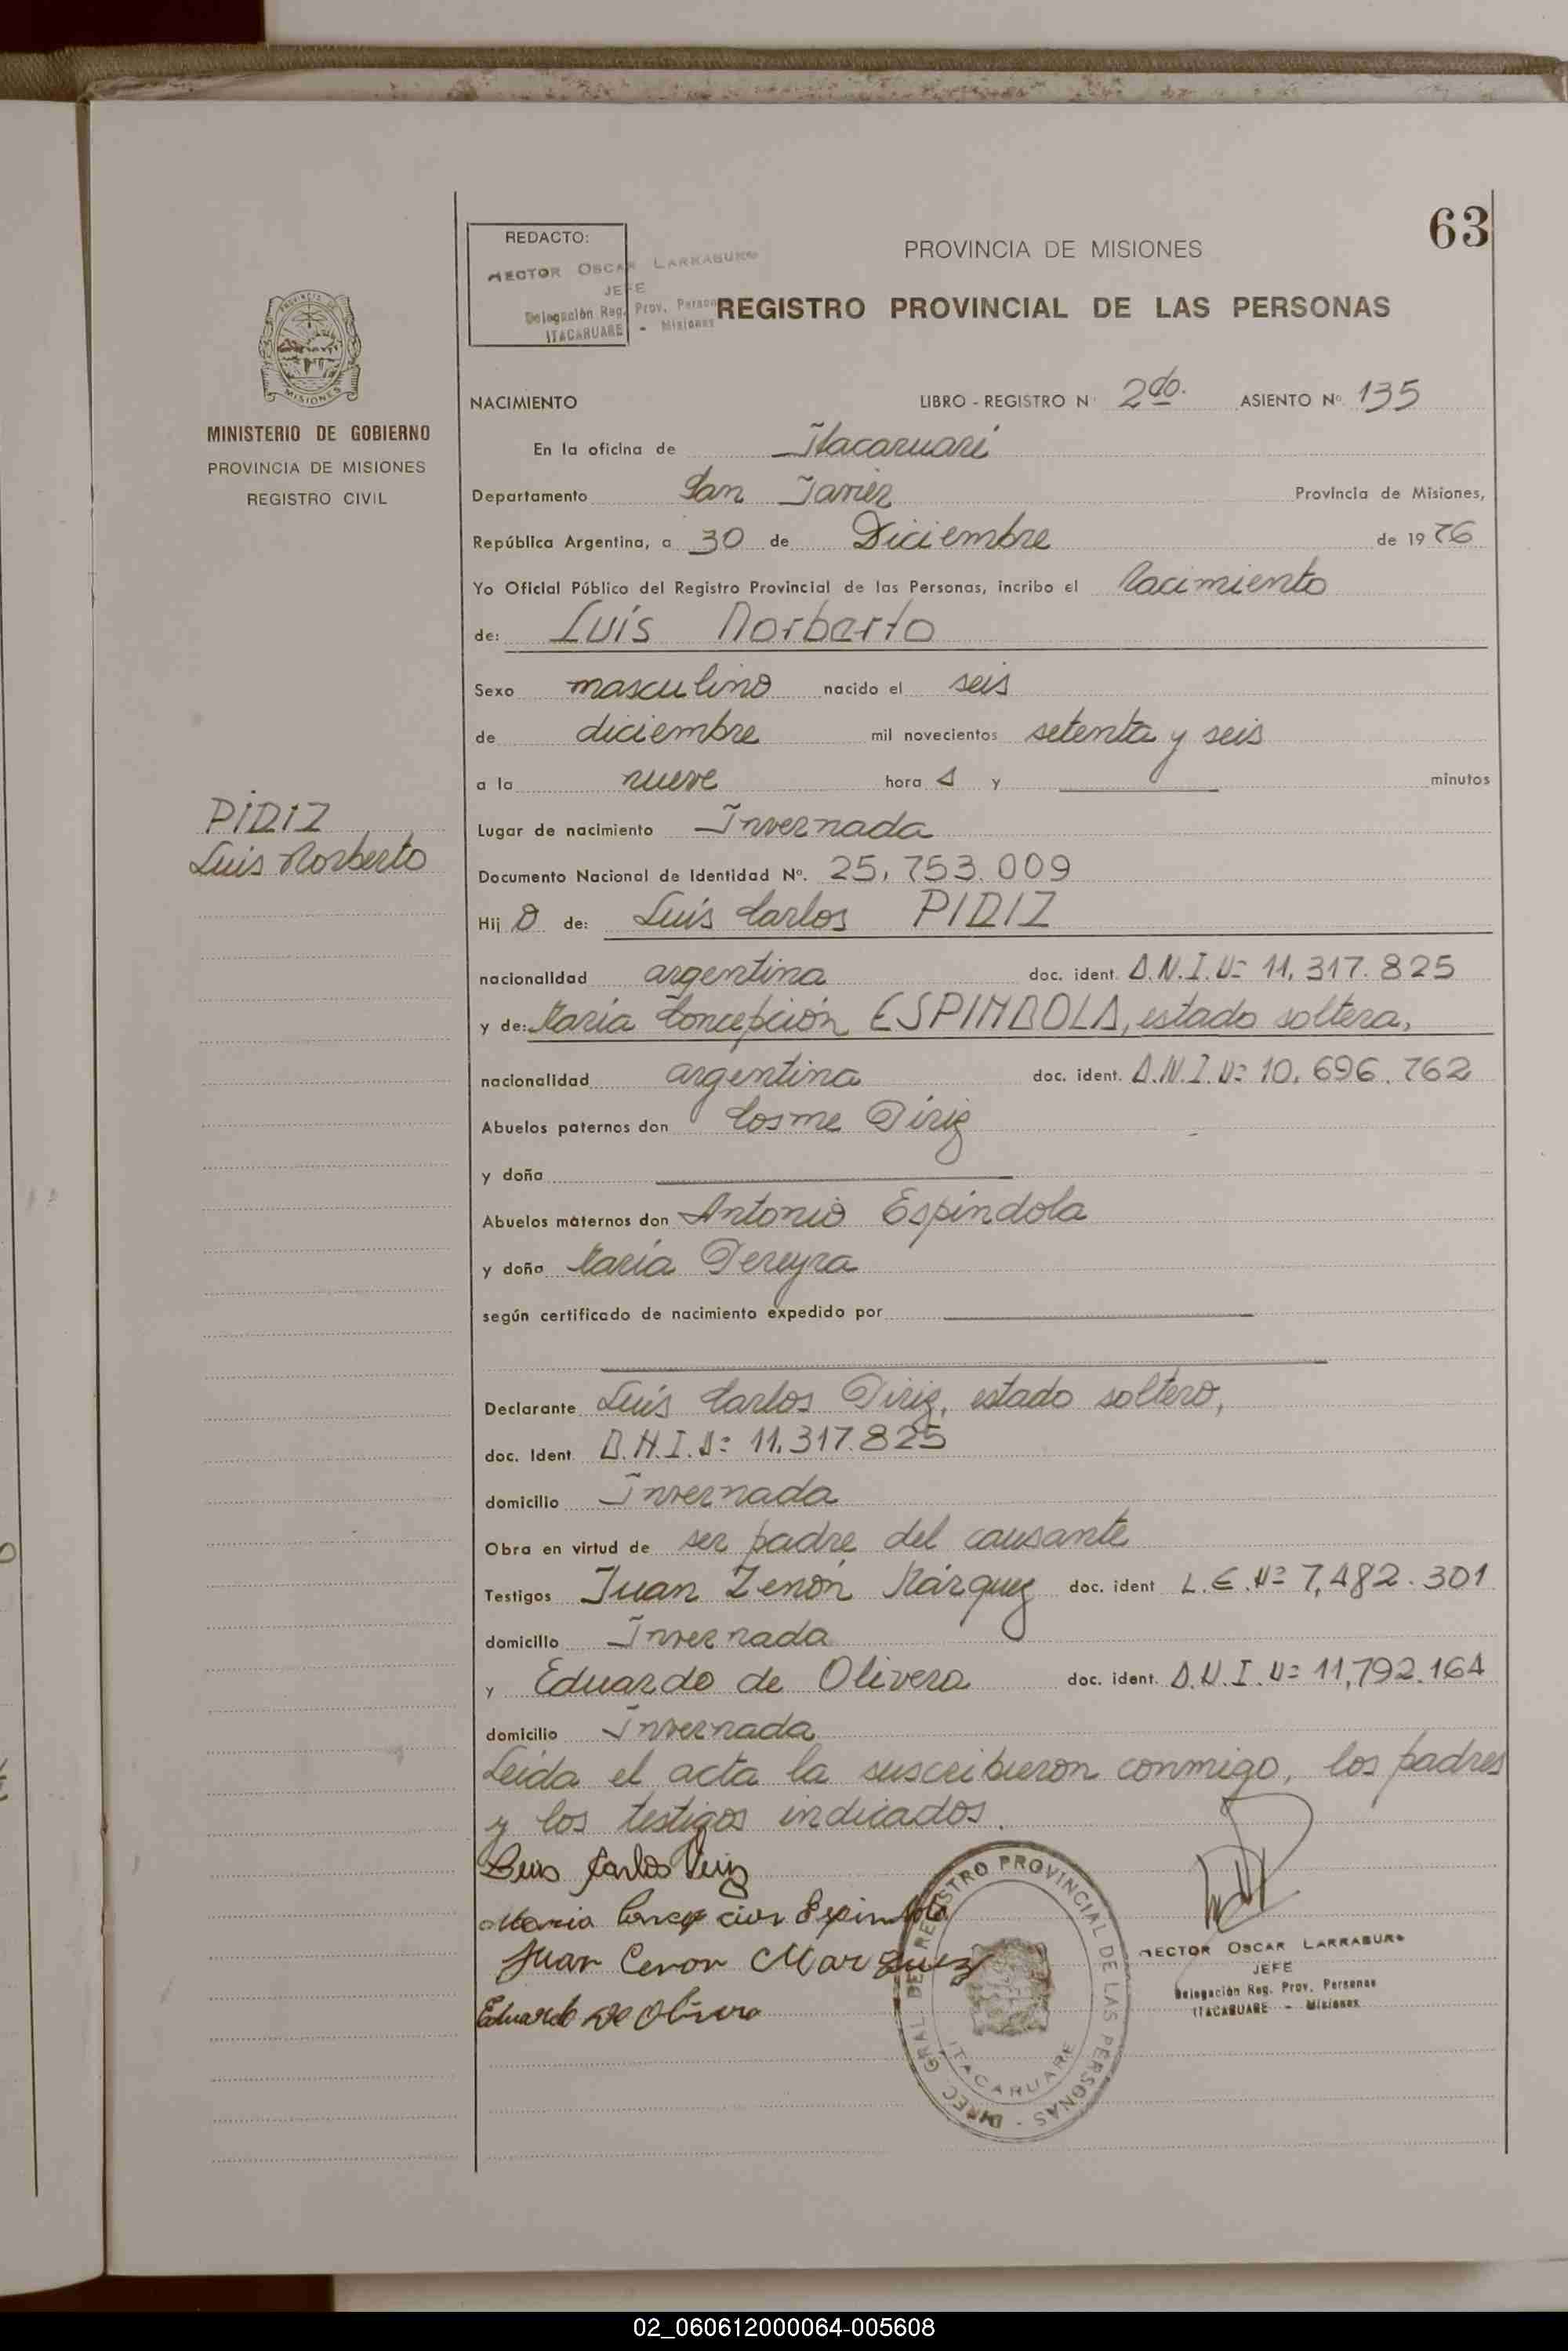 63
REDACTO:
HECTOR OSCAR LARRABURU
JEFE
Delegación Reg. Prov. Personas
ITACARUARE - Misiones
PROVINCIA DE MISIONES
REGISTRO PROVINCIAL DE LAS PERSONAS
PROVINCIA DE
MISIONES
MINISTERIO DE GOBIERNO
PROVINCIA DE MISIONES
REGISTRO CIVIL
NACIMIENTO LIBRO - REGISTRO Nº 2do. ASIENTO Nº 135
En la oficina de Itacaruaré
Departamento San Javier Provincia de Misiones,
República Argentina, a 30 de Diciembre de 1976
Yo Oficial Público del Registro Provincial de las Personas, incribo el Nacimiento
de: Luis Norberto
Sexo masculino nacido el seis
de diciembre mil novecientos setenta y seis
a la nueve hora s y minutos
PIRIZ
Luis Norberto
Lugar de nacimiento Invernada
Documento Nacional de Identidad Nº. 25,753.009
Hijo de: Luis Carlos PIRIZ
nacionalidad argentina doc. ident. D.N.I. Nº 11.317.825
y de: María Concepción ESPINDOLA, estado soltera,
nacionalidad argentina doc. ident. D.N.I. Nº 10.696.762
Abuelos paternos don Cosme Píriz
y doña
Abuelos maternos don Antonio Espíndola
y doña María Pereyra
según certificado de nacimiento expedido por
Declarante Luis Carlos Píriz, estado soltero,
doc. Ident. D.N.I. Nº 11.317.825
domicilio Invernada
Obra en virtud de ser padre del causante
Testigos Juan Zenón Márquez doc. ident L.E. Nº 7,482.301
domicilio Invernada
y Eduardo de Olivera doc. ident. D.N.I. Nº 11,792.164
domicilio Invernada
Leída el acta la suscribieron conmigo, los padres
y los testigos indicados.
Luis Carlos Piriz
Maria Concepcion Espindola
Juan Cenon Marquez
Eduardo De Olivera
DIREC. GRAL. DE REGISTRO PROVINCIAL DE LAS PERSONAS -
ITACARUARE
HECTOR OSCAR LARRABURU
JEFE
Delegación Reg. Prov. Personas
ITACARUARE - Misiones
02_060612000064-005608